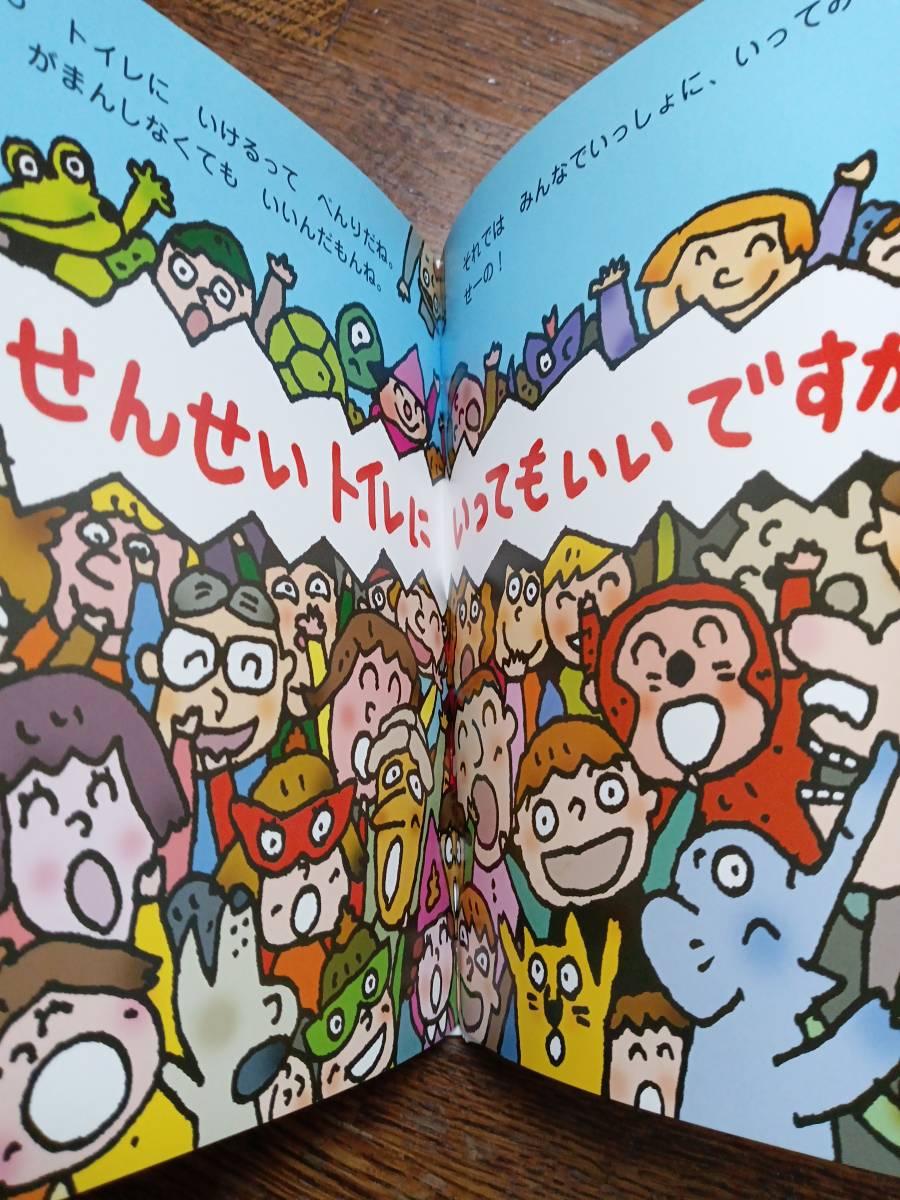 トイレに いけるって べんりだね。
がまんしなくても いいんだもんね。
それでは みんなでいっしょに、いって
せーの！
せんせい トイレに いってもいいですか